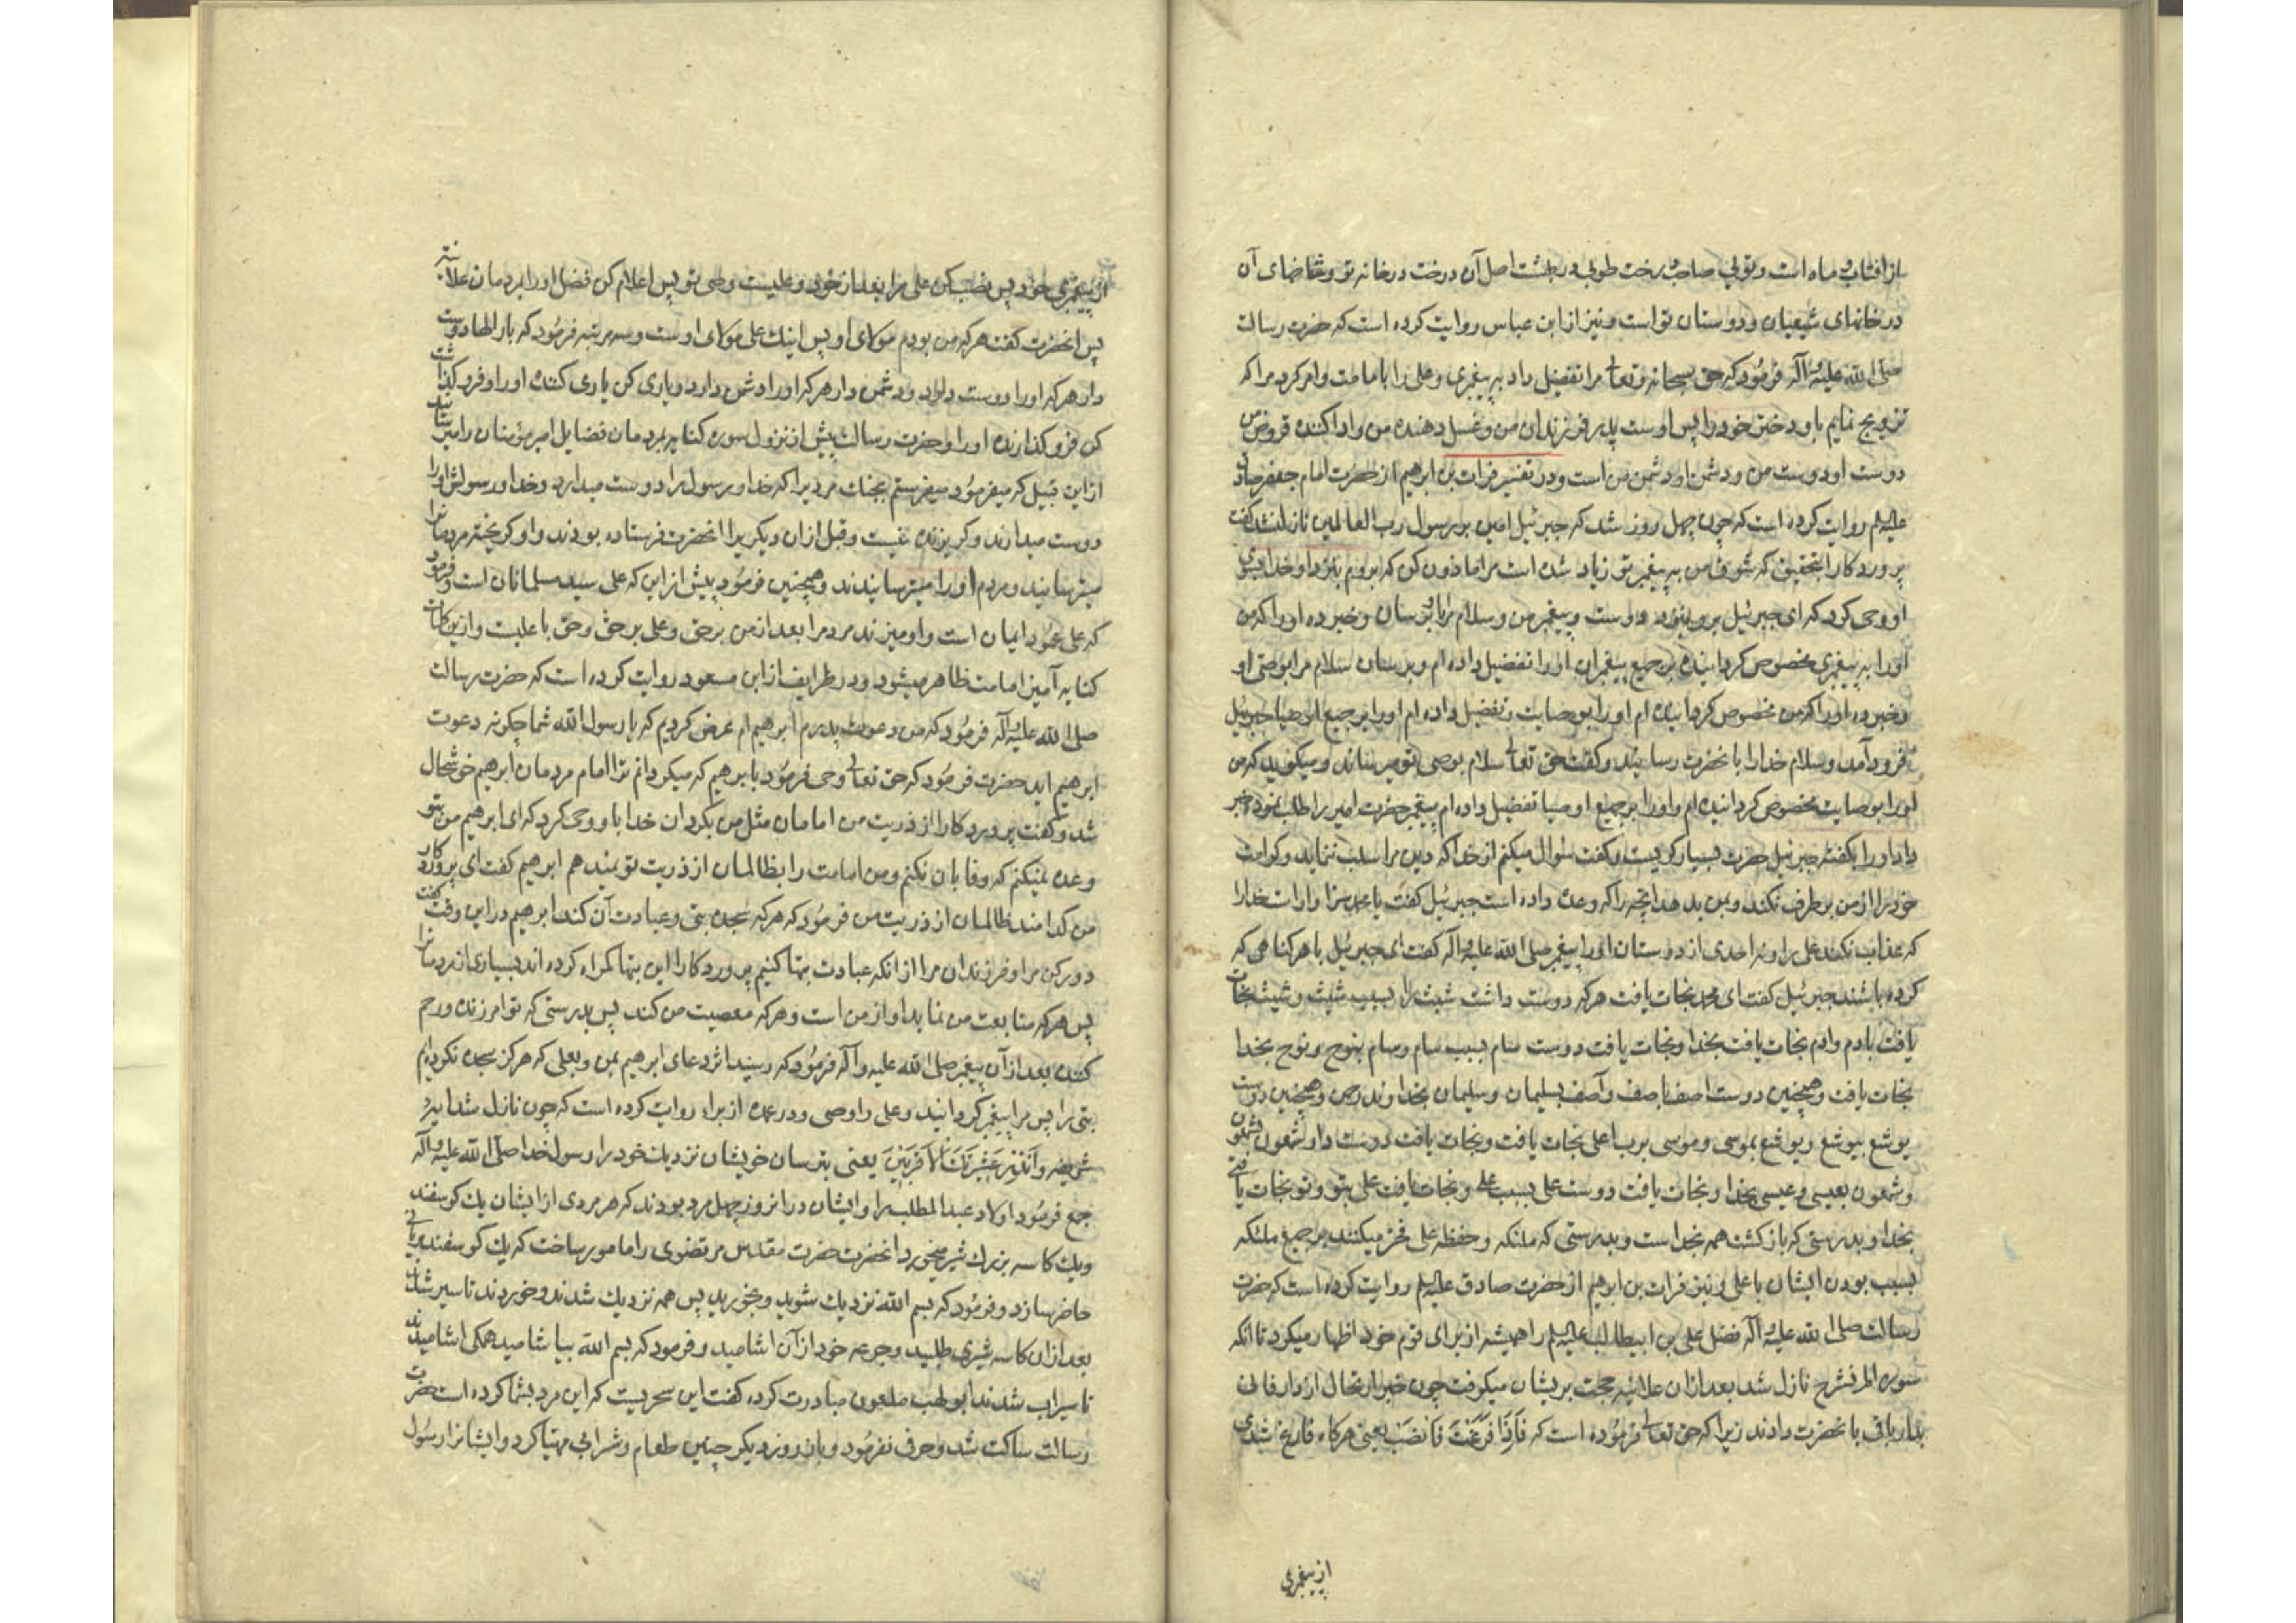 از آفتاب و ماه است و توئی صاحب درخت طوبی در بهشت اصل آن درخت در خانه تو و شاخهای آن
در خانهای شیعیان و دوستان تو است و نیز از ابن عباس روایت کرده است که حضرت رسالت
صلی الله علیه و آله فرمود که حق سبحانه و تعالی مرا تفضیل داد به پیغمبری و علی را بامامت و امر کرد مرا که
تزویج نمایم باو دختر خود را پس اوست پدر فرزندان من و غسل دهنده من و ادا کننده قروض من
دوست او دوست من و دشمن او دشمن من است و در تفسیر فرات بن ابرهیم از حضرت امام جعفر صادق
علیه السلم روایت کرده است که چون چهل روز شد که جبرئیل امین بر رسول رب العالمین نازل نشد گفت
پروردکارا بتحقیق که شوق من به پیغمبر تو زیاد شده است مرا ماذون کن که بروم بنزد او خدا بسوی
او وحی کرد که ای جبرئیل برو بنزد دوست و پیغمبر من و سلام مرا باو برسان و خبر ده او را که من
او را به پیغمبری مخصوص کردانیده بر جمیع پیغمبران او را تفضیل داده ام و برسان سلام مرا بوصی او
و خبر ده او را که من مخصوص کردانیده ام او را بوصایت و تفضیل داده ام او را بر جمیع اوصیا جبرئیل
فرود آمد و سلام خدا را بانحضرت رسانید و گفت حق تعالی سلام بوصی تو میرساند و میکوید که من
او را بوصایت مخصوص کردانیده ام و او را بر جمیع اوصیا تفضیل داده ام پیغمبر حضرت امیر را طلب نمود و خبر
داد او را بکفته جبرئیل حضرت بسیار کریست و کفت سئوال میکنم از خدا که دین مرا سلب ننماید و کرامت
خود را از من برطرف نکند و بمن بدهد آنچه را که وعده داده است جبرئیل کفت یا محمد سزاوار است خدا را
که عذاب نکند علی را و نه احدی از دوستان او را پیغمبر صلی الله علیه و آله کفت ای جبرئیل با هر کناهی که
کرده باشند جبرئیل کفت ای محمد نجات یافت هر که دوست داشت شیث را بسبب شیث و شیث نجات
یافت بادم و ادم نجات یافت بخدا و نجات یافت دوست سام بسبب سام و سام بنوح و نوح بخدا
نجات یافت و همچنین دوست اصف باصف و آصف بسلیمان و سلیمان بخداوند رحمن و همچنین دوست
یوشع بیوشع و یوشع بموسی و موسی برب اعلی نجات یافت و نجات یافت دوست دار شمعون بشمعون
و شمعون بعیسی و عیسی بخدا و نجات یافت دوست علی بسبب علی و نجات یافت علی بتو و تو نجات یافتی
بخدا و بدرستی که بازکشت همه بخداست و بدرستی که ملئکه و حفظه علی فخر میکنند بر جمیع ملئکه
بسبب بودن ایشان با علی و نیز فرات بن ابرهیم از حضرت صادق علیه السلم روایت کرده است که حضرت
رسالت صلی الله علیه و آله فضل علی بن ابیطالب علیه السلم را همیشه از برای قوم خود اظهار میکرد تا آنکه
سوره الم نشرح نازل شد بعد از آن علانیه حجت بر یشان میکرفت چون خبر ارتحال از دار فانی
بدار باقی بانحضرت دادند زیرا که حق تعالی فرموده است که فَاِذَا فَرَغْتَ فَانْصَبْ یعنی هرکاه فارغ شدی
از پیغمبری
از پیغمبری خود پس نصب کن علی را بعد از خود و علیست وصی تو پس اعلام کن فضل او را بمردمان علانیه
پس انحضرت کفت هر که من بودم مولای او پس اینک علی مولای اوست و سه مرتبه فرمود که بار الها دوست
دار هر که او را دوست دارد و دشمن دار هر که او را دشمن دارد و یاری کن یاری کننده او را و فرو کذاشت
کن فرو کذارنده او را و حضرت رسالت پیش از نزول سوره کنایه بمردمان فضایل امیر مؤمنان را میرسانید
از این قبیل که میفرمود میفرستم بجنک مردیرا که خدا و رسول را دوست میدارد و خدا و رسولش او را
دوست میدارند و کریزنده نیست و قبل از آن دیکریرا انحضرت فرستاده بودند و او کریخته مردمانرا
میترسانید و مردم او را میترسانیدند و همچنین فرمود پیش از این که علی سید مسلمانان است و فرمود
که علی عمود ایمان است و او میزند مردم را بعد از من بر حق و علی بر حق و حق با علیست و از ین کلمات
کنایه آمیز امامت ظاهر میشود و در طرایف از ابن مسعود روایت کرده است که حضرت رسالت
صلی الله علیه و آله فرمود که من دعوت پدرم ابرهیم ام عرض کردیم که یا رسول الله شما چکونه دعوت
ابرهیم اید حضرت فرمود که حق تعالی وحی فرمود بابرهیم که میکردانم ترا امام مردمان ابرهیم خوشحال
شد و گفت پروردکارا از ذریت من امامان مثل من بکردان خدا باو وحی کرد که ای ابرهیم من بتو
وعده نمیکنم که وفا بان نکنم و من امامت را بظالمان از ذریت تو نمیدهم ابرهیم کفت ای پروردکار
من کدامند ظالمان از ذریت من فرمود که هر که سجده بتی و عبادت آن کند ابرهیم در این وقت کفت
دور کن مرا و فرزندان مرا از انکه عبادت بتها کنیم پروردکارا این بتها کمراه کرده اند بسیاری از مردمانرا
پس هر که متابعت من نماید او از من است و هر که معصیت من کند پس بدرستی که تو امرزنده و رحم
کننده بعد از آن پیغمبر صلی الله علیه و آله فرمود که رسید اثر دعای ابرهیم بمن و بعلی که هرکز سجده نکرده ایم
بتی را پس مرا پیغمبر کردانید و علی را وصی و در عمده از براء روایت کرده است که چون نازل شد ایه
شریفه وَاَنْذِرْ عَشِیرَتَكَ الْاَقْرَبِینَ یعنی بترسان خویشان نزدیک خود را رسول خدا صلی الله علیه و آله
جمع فرمود اولاد عبد المطلب را و ایشان در انروز چهل مرد بودند که هر مردی از ایشان یک کوسفند
و یک کاسه بزرک شیر میخورد انحضرت حضرت مقدس مرتضوی را مامور ساخت که یک کوسفند بریانی
حاضر سازد و فرمود که بسم الله نزدیک شوید و بخورید پس همه نزدیک شدند و خوردند تا سیر شدند
بعد از ان کاسه شیری طلبید و جرعه خود از آن اشامید و فرمود که بسم الله بیاشامید همکی اشامیدند
تا سیراب شدند ابو لهب ملعون مبادرت کرده کفت این سحریست که این مرد بشما کرده است حضرت
رسالت ساکت شد و حرف نفرمود و بان روز دیکر چنین طعام و شرابی مهیا کرد و ایشانرا رسول